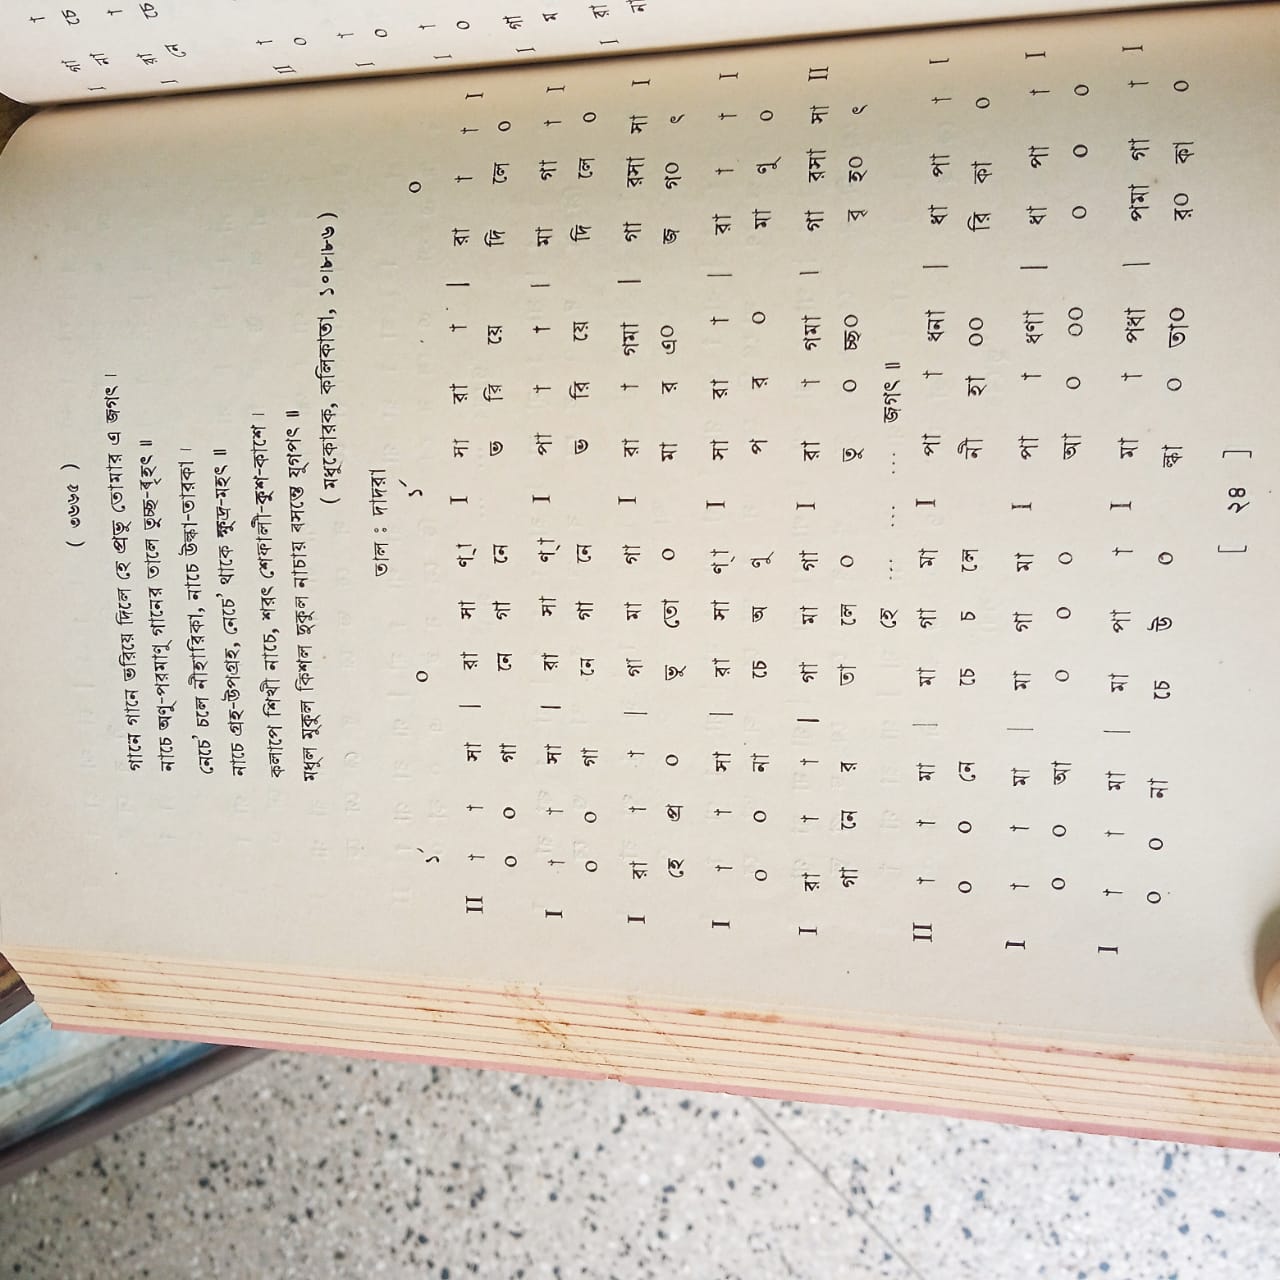 ( ৩৬৬৫ )
গানে গানে ভরিয়ে দিলে হে প্রভু তোমার এ জগৎ ।
নাচে অণু-পরমাণু গানের তালে তুচ্ছ-বৃহৎ ॥
নেচে' চলে নীহারিকা, নাচে উল্কা-তারকা ।
নাচে গ্রহ-উপগ্রহ, নেচে' থাকে ক্ষুদ্র-মহৎ ॥
কলাপে শিখী নাচে, শরৎ শেফালী-কুশ-কাশে ।
মধুল মুকুল কিশল দুকুল নাচায় বসন্তে যুগপৎ ॥
( মধুকোরক, কলিকাতা, ১০।৮।৮৬ )
তাল : দাদরা
১´ ০ ১´ ০
II † † সা | রা সা ণ্া I সা রা † | রা † † I
০ ০ গা নে গা নে ভ রি য়ে দি লে ০
I † † সা | রা সা ণ্া I পা † † | মা গা † I
০ ০ গা নে গা নে ভ রি য়ে দি লে ০
I রা † † | গা মা গা I রা † গমা | গা রসা সা I
হে প্র ০ ভু তো ০ মা র এ০ জ গ০ ৎ
I † † সা | রা সা ণ্া I সা রা † | রা † † I
০ ০ না চে অ ণু প র ০ মা ণু ০
I রা † † | গা মা গা I রা † গমা | গা রসা সা II
গা নে র তা লে ০ তু ০ চ্ছ০ বৃ হ০ ৎ
হে ... ... ... জগৎ ॥
II † † মা | মা গা মা I পা † ধনা | ধা পা † I
০ ০ নে চে চ লে নী হা ০০ রি কা ০
I † † মা | মা গা মা I পা † ধণা | ধা পা † I
০ ০ আ ০ ০ ০ আ ০ ০০ ০ ০ ০
I † † মা | মা পা † I মা † পধা | পমা গা † I
০ ০ না চে উ ০ ল্কা ০ তা০ র০ কা ০
[ ২৪ ]